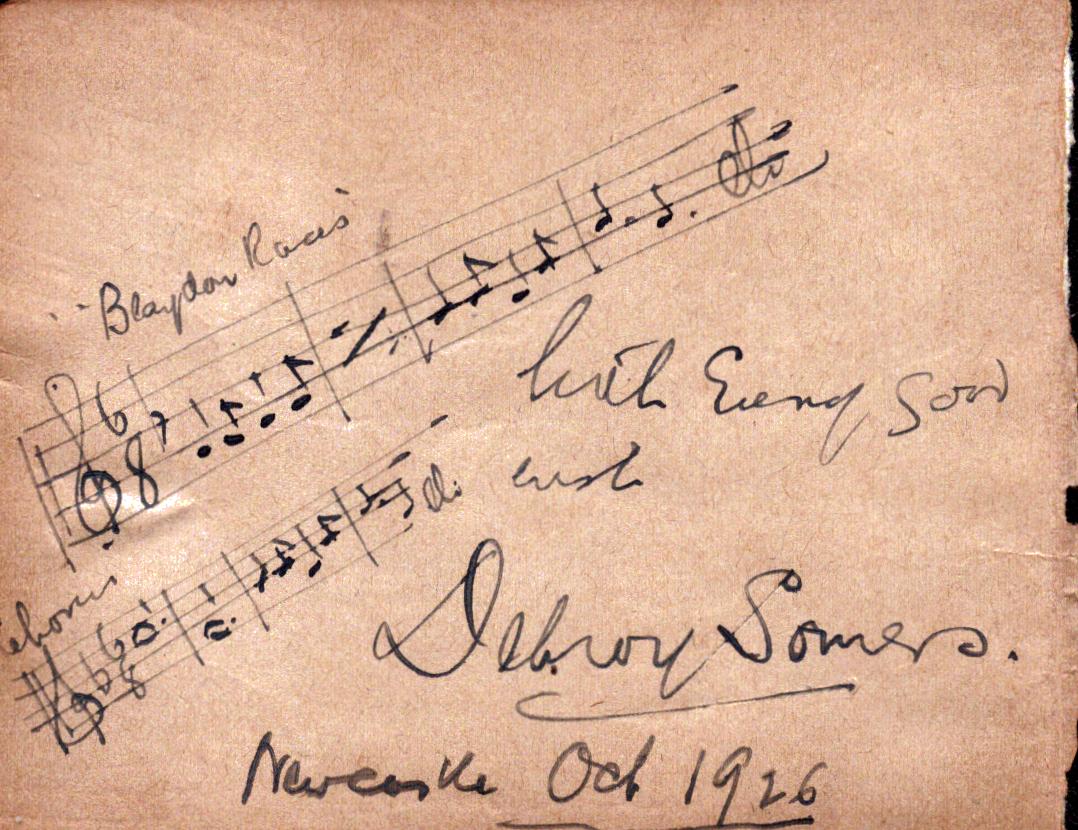 "Blaydon Races"
6
8
With Every good
wish
6
8
Debroy Somers.
Newcastle Oct 1926